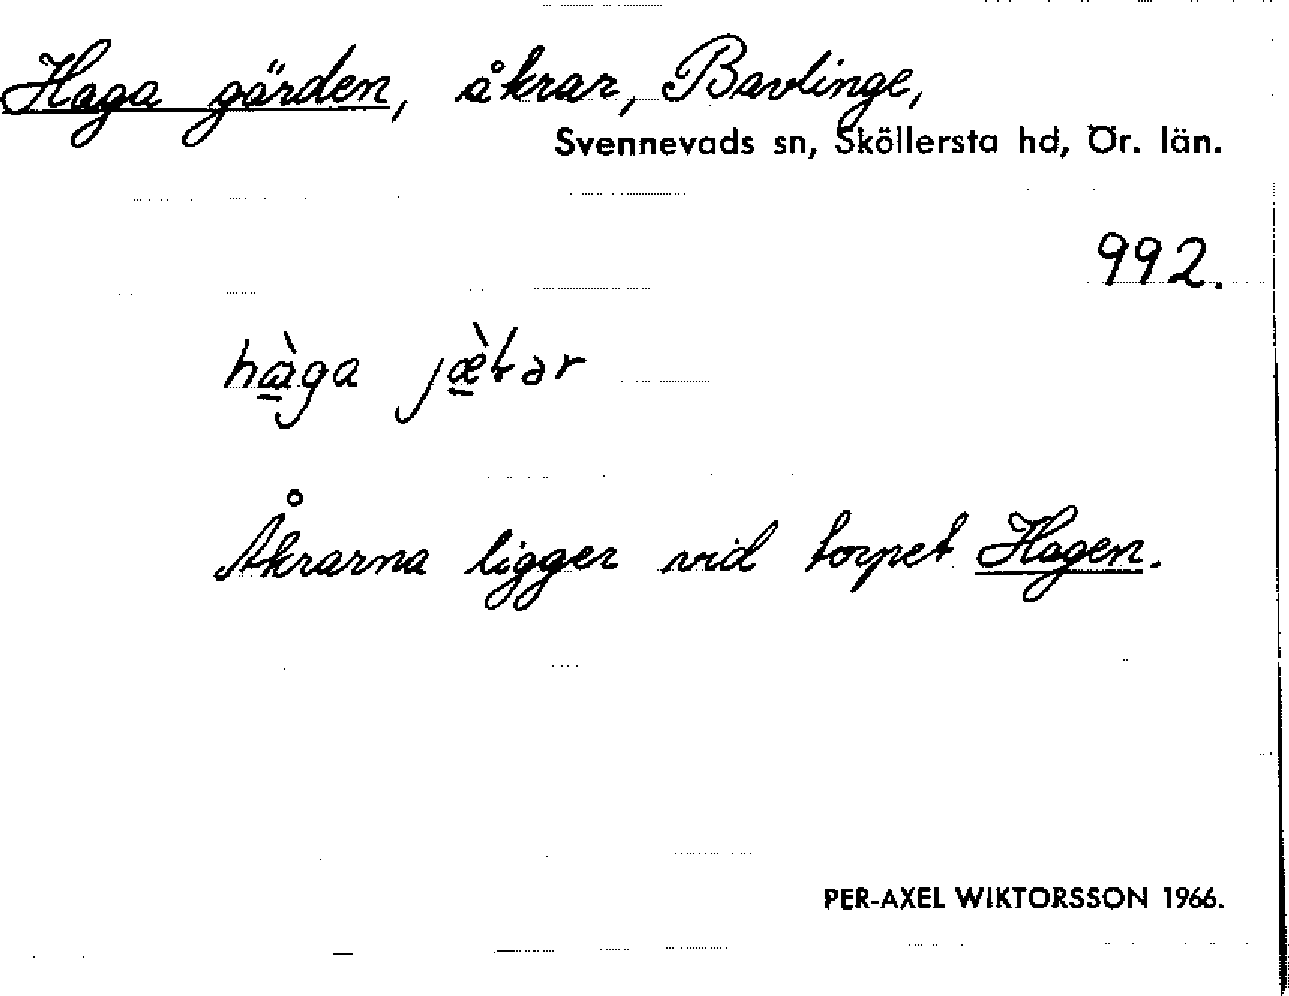 Haga gärden, åkrar, Bavlinge,
Svennevads sn, Sköllersta hd, Ör. län.
992.
hàga jæ̀kar
Åkrarna ligger vid torpet Hagen.
PER-AXEL WIKTORSSON 1966.